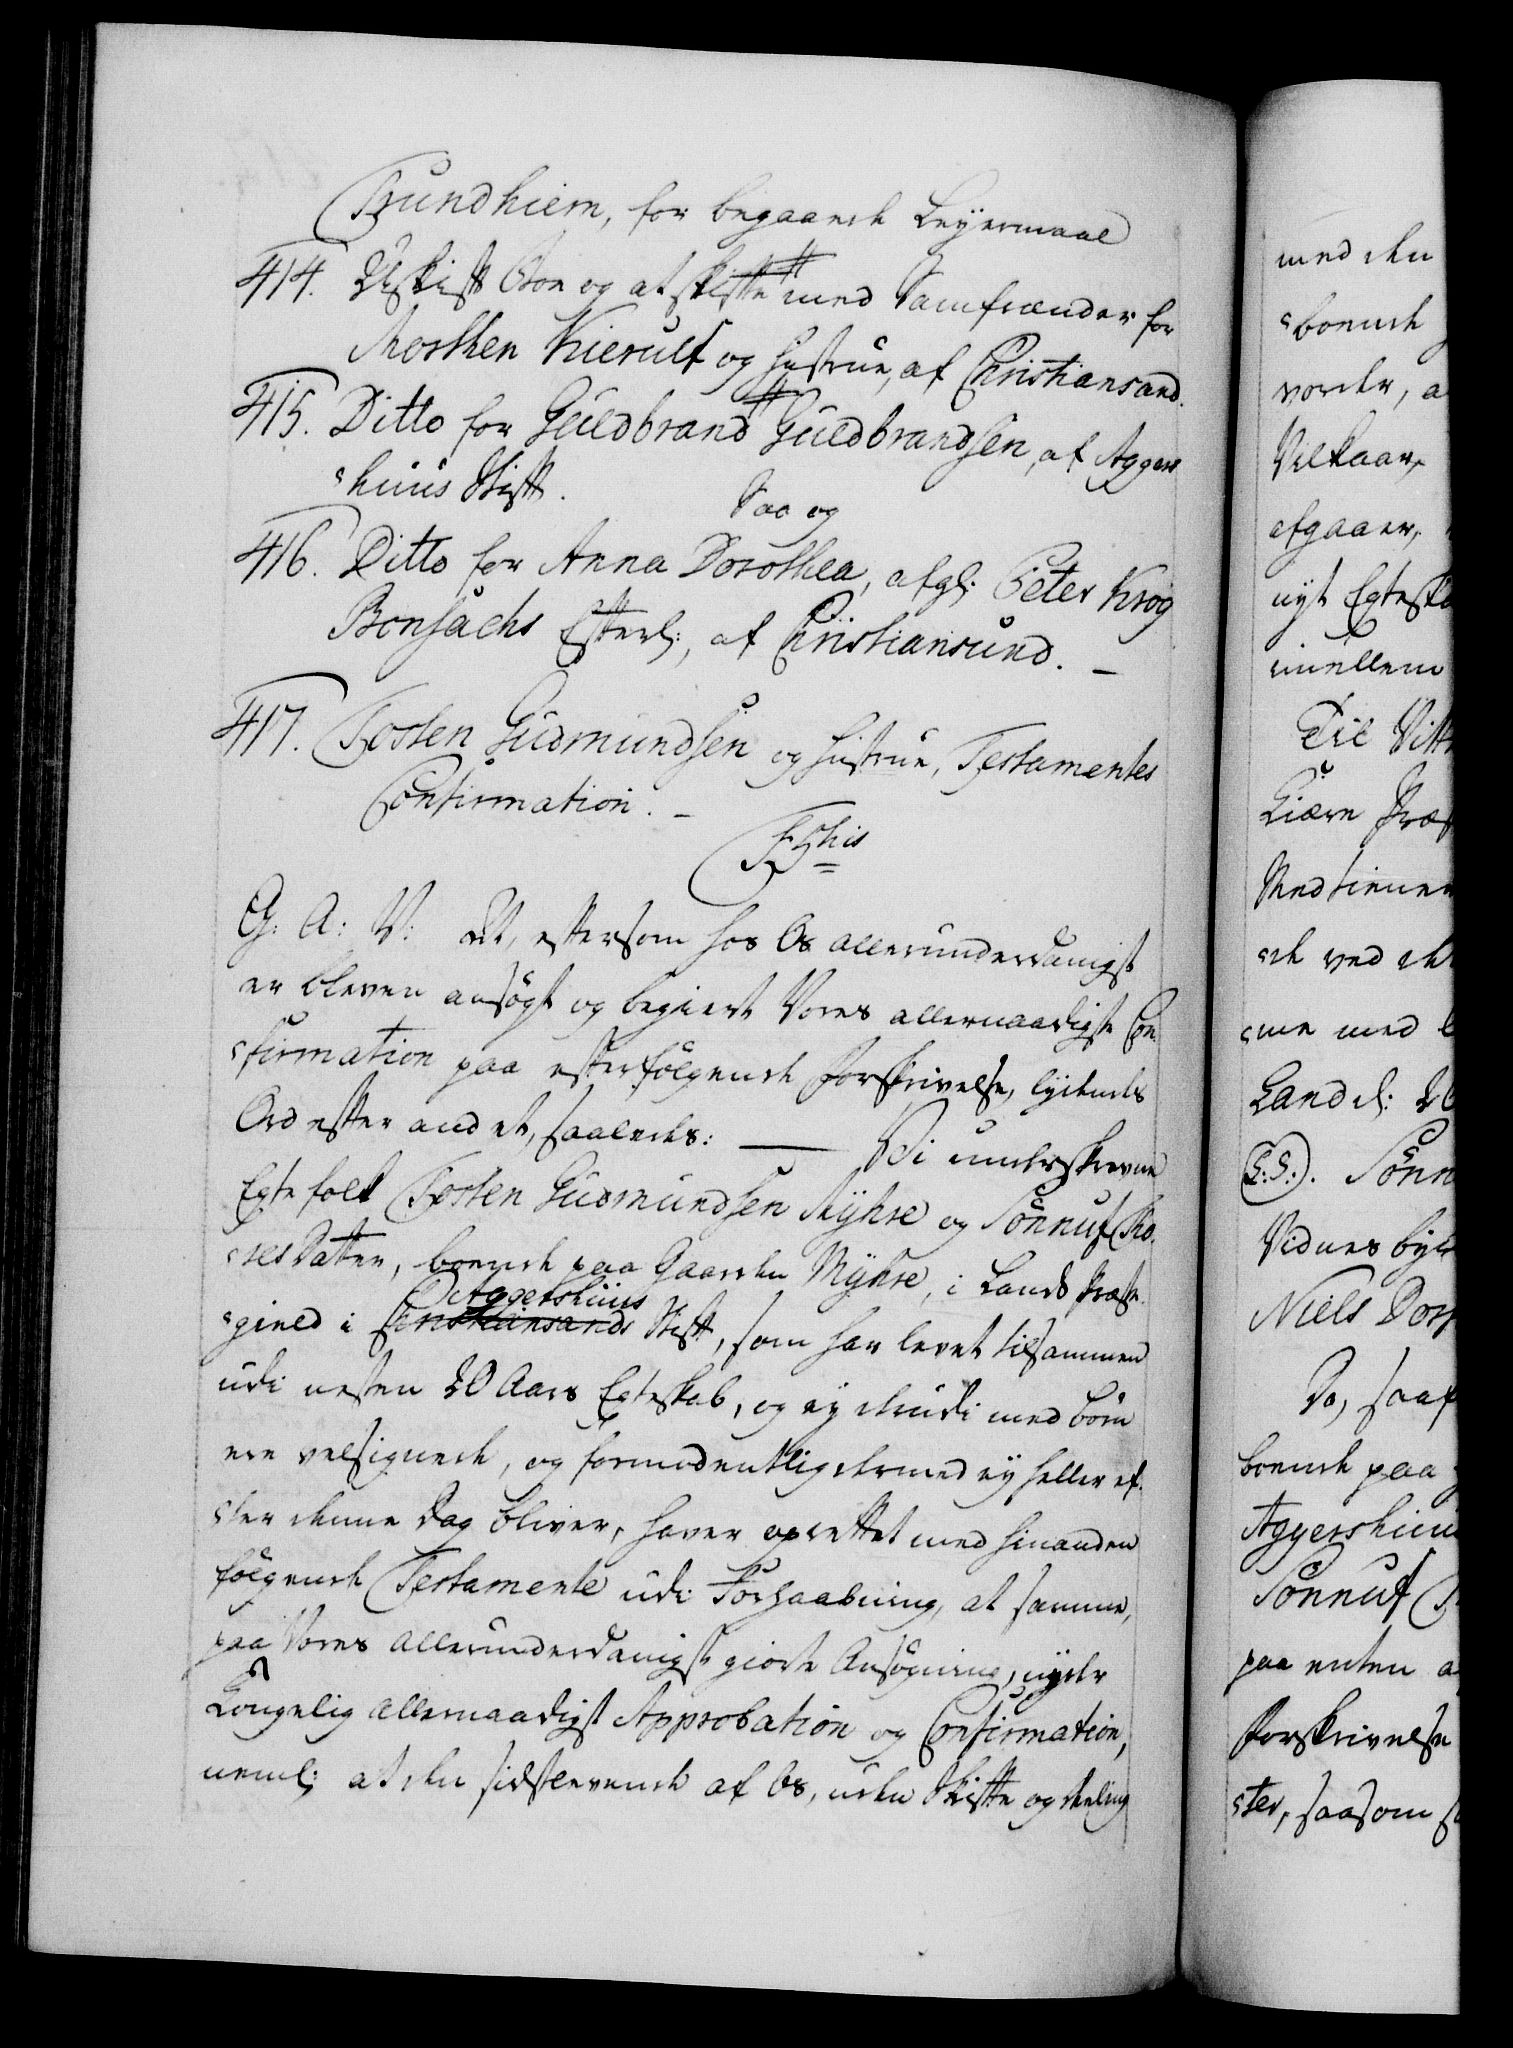 Trundhiem, for begaaende Leyermaal
414. Uskift Boe og at skifte # med Samfrænder for
Morthen Kierulf og Hustrue, af Christiansand.
415. Ditto for Guldbrand # Guldbrandsen, af Agger¬
huus Stift.
Saa og
416. Ditto for Anna Dorothea, afgl: Peter Krog
Bonsachs Efterl:, af Christiansund. –
417. Tosten Gudmundsen og Hustrue, Testamentes
Confirmation. –
G: A: V: At, eftersom hos Os allerunderdanigst
er bleven ansøgt og begiert Vores allernaadigste Con¬
firmation paa efterfølgende Forskrivelse, lydende
Ord efter andet, saaledes: — Vi underskrevne
Egtefolk Tosten Gudmundsen Myhre og Sønnuf Tho¬
resdatter, boende paa Gaarden Myhre, i Lands Præste¬
gield i Christiansands Aggershuus Stift, som har levet tilsammen
udi nesten 20 Aars Egteskab, og ey derudi med Børn
ere velsignede, og formodentlig dermed ey heller ef¬
ter denne Dag bliver, haver oprettet med hinanden
følgende Testamente udi Forhaabning, at samme,
paa Vores allerunderdanigst giorte Ansøgning, nyder
Kongelig allernaadigst Approbation og Confirmation,
neml: at den sidstlevende af Os, uden Skifte og deeling
med den
boende
vorder, a
Vilkaar,
afgaaer,
nyt Egteska
imellem
Til Vitt
Kiære Præst
Medtiener
de ved de
me med
Land d: 26
(L:S:). Sønn
Vidnesbyr
Niels Dor
Da, saaf
boende paa
Aggershuu
Sønnuf
paa enten a
Forskrivelse
ter, saasom